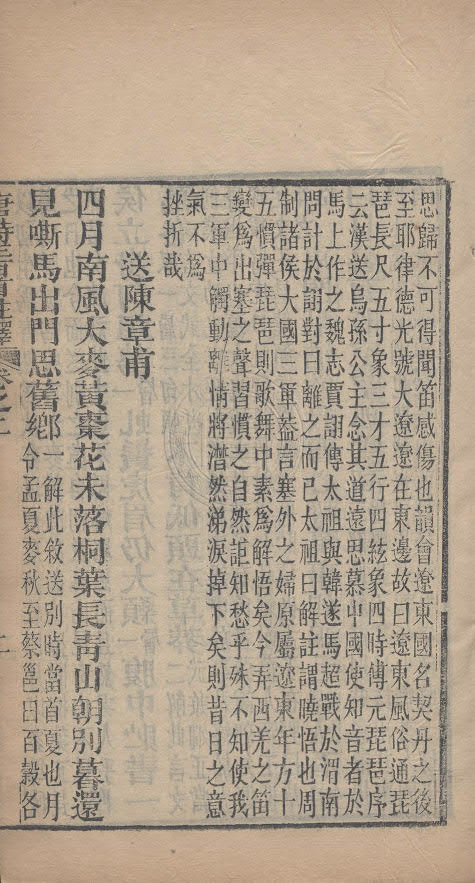 思歸不可得聞笛感傷也韻會遼東國名契丹之後
至耶律德光號大遼遼在東邊故曰遼東風俗通琵
琶長尺五寸象三才五行四絃象四時傅元琵琶序
云漢送烏孫公主念其道遠思慕中國使知音者於
馬上作之魏志賈詡傳太祖與韓遂馬超戰於渭南
問計於詡對曰離之而已太祖曰解註謂曉悟也周
制諸侯大國三軍葢言塞外之婦原屬遼東年方十
五慣彈琵琶則歌舞中素爲解悟矣今弄西羌之笛
變爲出塞之聲習慣之自然詎知愁乎殊不知使我
三軍中觸動離情將潸然涕淚掉下矣則昔日之意
氣不爲
挫折哉
送陳章甫
四月南風大麥黃棗花未落桐葉長青山朝別暮還
見嘶馬出門思舊鄉
一解此敘送別時當首夏也月
令孟夏麥秋至蔡邕曰百穀各
唐詩三百首註釋